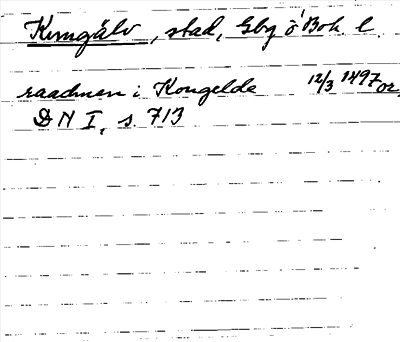 Kungälv, stad, Gbg o Boh l.
raadmen i Kongelde 12/3 1497 or.
DN I, s. 713